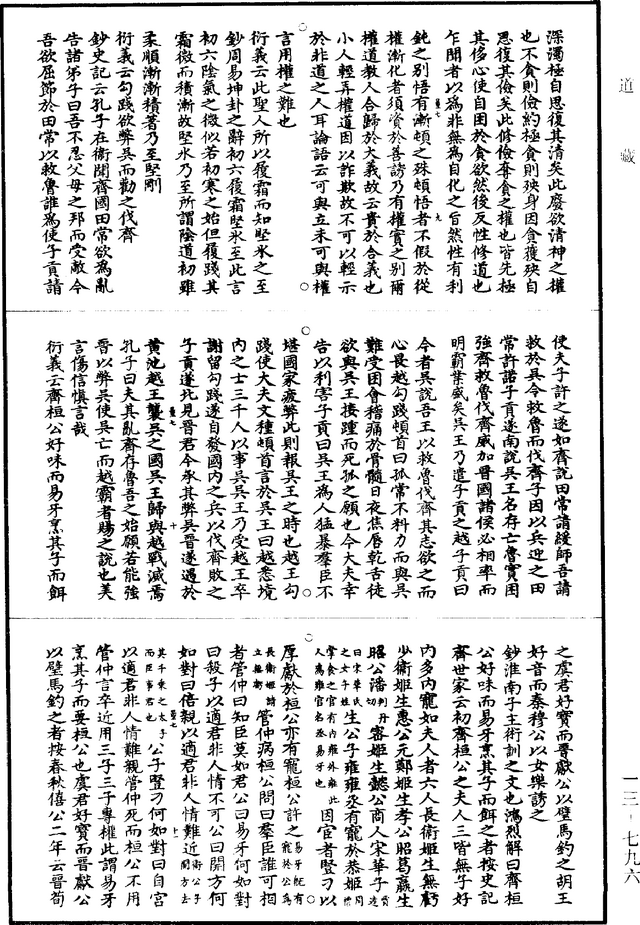 道藏
深濁極自思復其清矣此廢欲清神之權
也不貪則儉約極貪則殃身因貪獲殃自
思復其儉矣此修儉奪貪之權也皆先極
其侈心使自困於貪欲然後反性修道也
乍聞者以為非無為自化之旨然性有利
鈍之別悟有漸頓之殊頓悟者不假於從
權漸化者須資於善誘乃有權實之別爾
權道教人合歸於大義故云貴於合義也
小人輕弄權道因以詐欺故不可以輕示
於非道之人耳論語云可與立未可與權
言用權之難也
衍義云此聖人所以履霜而知堅氷之至
鈔周易坤卦之辭初六履霜堅氷至此言
初六陰氣之微似若初寒之始但履踐其
霜微而積漸故堅氷乃至所謂陰道初雖
柔順漸漸積著乃至堅剛
衍義云勾踐欲弊吳而勸之伐齊
鈔史記云孔子在衛聞齊國田常欲為亂
告諸弟子曰吾不忍父母之邦而受敵今
吾欲屈節於田常以救魯誰為使子貢請
使夫子許之遂如齊說田常請緩師吾請
救於吳令救魯而伐齊子因以兵迎之田
常許諾子貢遂南說吳王名存亡魯實困
強齊救魯伐齊威加晉國諸侯必相率而
明霸業盛矣吳王乃遣子貢之越子貢曰
今者吳說吾王以救魯伐齊其志欲之而
心畏越勾踐頓首曰孤常不料力而與吳
難受困會稽痛於骨髓日夜焦唇乾舌徒
欲與吳王接踵而死孤之願也今大夫幸
告以利害子貢曰吳王為人猛暴羣臣不
堪國家疲弊此則報吳王之時也越王勾
踐使大夫文種頓首言於吳王曰越悉境
內之士三千人以事吳吳王乃受越王卒
謝留勾踐遂自發國內之兵以伐齊敗之
子貢遂北見晉君令承其弊吳晉遂遇於
黃池越王襲吳之國吳王歸與越戰滅焉
孔子曰夫其亂齊存魯吾之始願若能強
晉以弊吳使吳亡而越霸者賜之說也美
言傷信慎言哉
衍義云齊桓公好味而易牙烹其子而餌
之虞君好寶而晉獻公以璧馬釣之胡王
好音而秦穆公以女樂誘之
鈔淮南子主術訓之文也鴻烈解曰齊桓
公好味而易牙烹其子而餌之者按史記
齊世家云初齊桓公之夫人三皆無子好
內多內寵如夫人者六人長衛姬生無虧
少衛姬生惠公元鄭姬生孝公昭葛嬴生
昭公潘密姬生懿公商人宋華子
生公子雍雍巫有寵於恭姬
因宦者豎刁以
厚獻於桓公亦有寵桓公許之
管仲病桓公問曰羣臣誰可相
者管仲曰知臣莫如君公曰易牙何如對
曰殺子以適君非人情不可公曰開方何
如對曰倍親以適君非人情難近
公子豎刁何如對曰自宮
以適君非人情難親管仲死而桓公不用
管仲言卒近用三子三子專權此謂易牙
烹其子而要桓公也虞君好寶而晉獻公
以璧馬釣之者按春秋僖公二年云晉荀
一三‐七九六